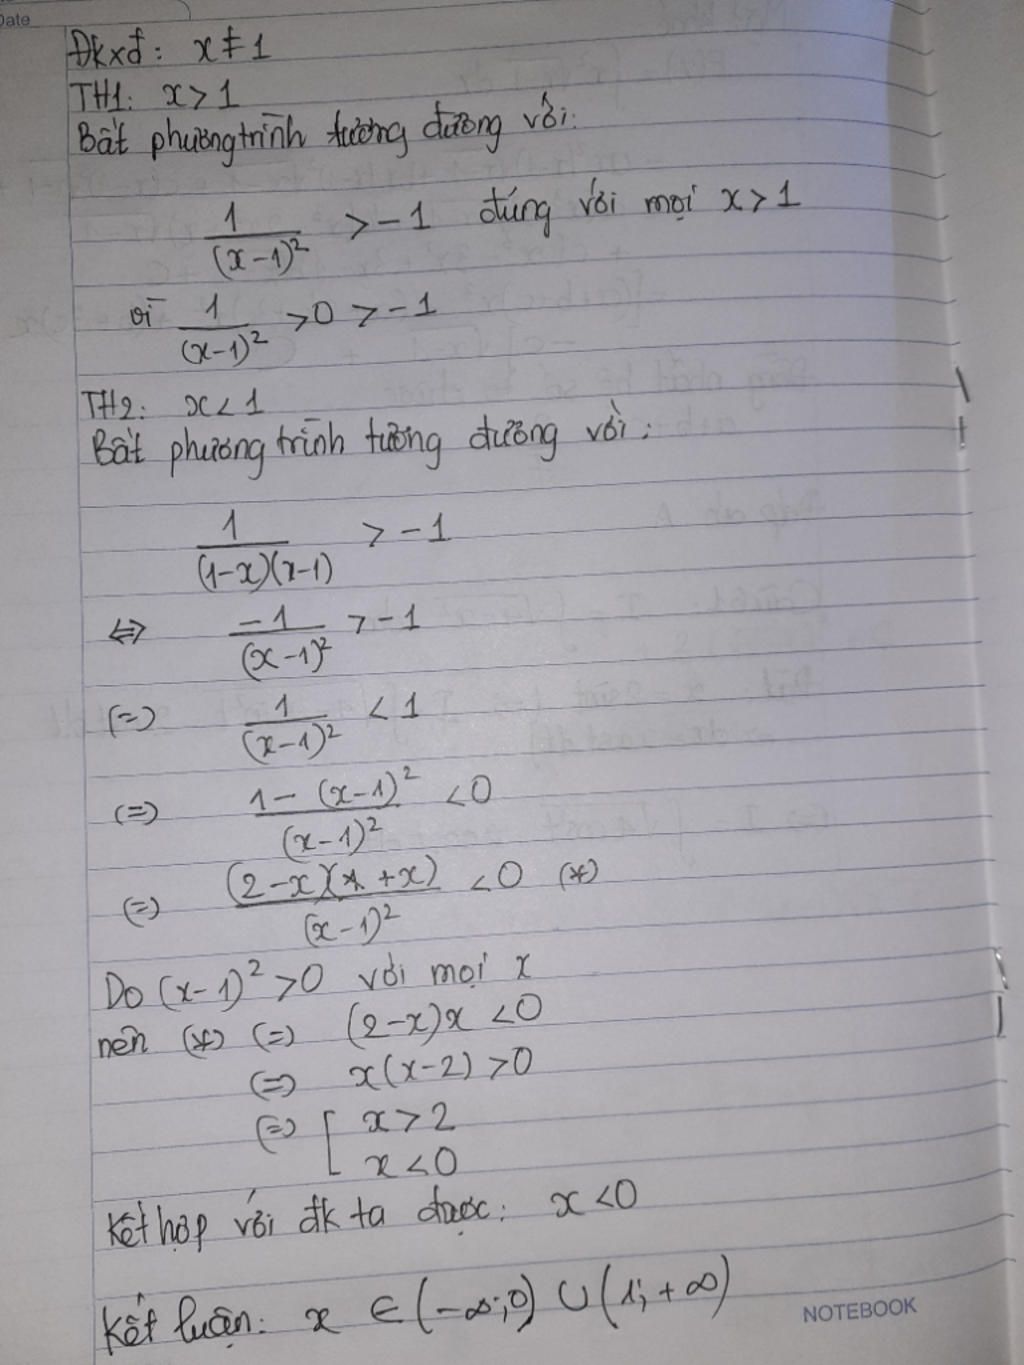 Date
Đkxđ: x ≠ 1
TH1: x > 1
Bất phương trình tương đương với:
1/(x-1)² > -1 đúng với mọi x > 1
vì 1/(x-1)² > 0 > -1
TH2: x < 1
Bất phương trình tương đương với:
1/((1-x)(x-1)) > -1
⇔ -1/(x-1)² > -1
(=) 1/(x-1)² < 1
(=) (1-(x-1)²)/(x-1)² < 0
(=) (2-x)(+x)/(x-1)² < 0 (*)
Do (x-1)² > 0 với mọi x
nên (*) (=) (2-x)x < 0
(=) x(x-2) > 0
(=) [ x > 2
x < 0
Kết hợp với đk ta được: x < 0
Kết luận: x ∈ (-∞;0) ∪ (1;+∞)
NOTEBOOK